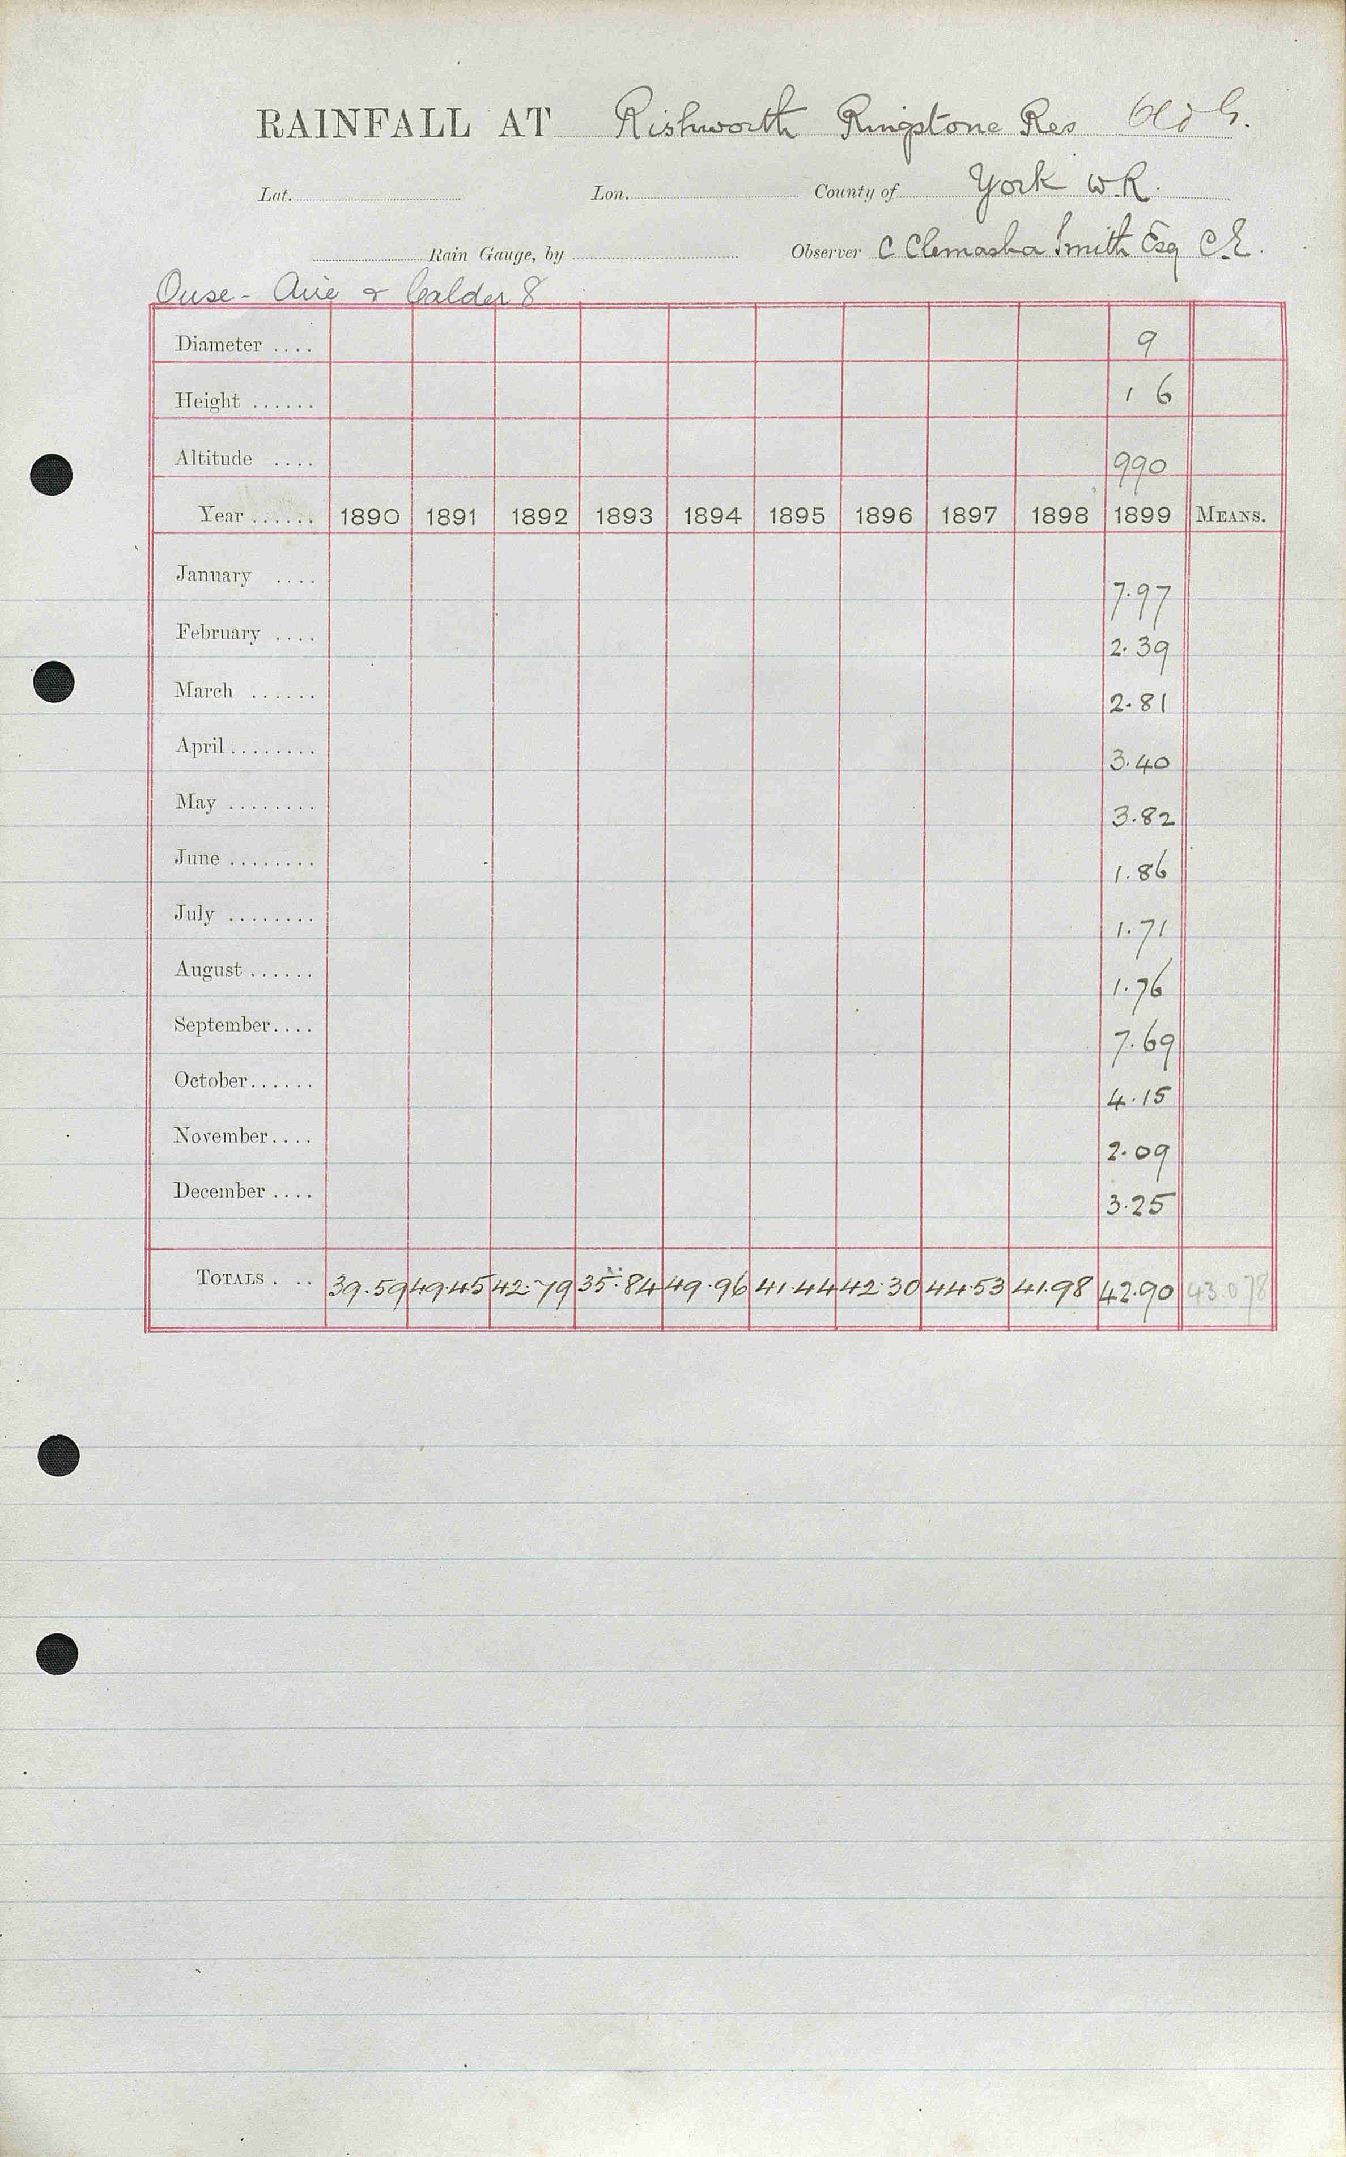 RAINFALL AT Rishworth Ringstone Res Old G.
Lat. Lon. County of York W.R.
Rain Gauge, by Observer C Clemasha Smith Esq C.E.
Ouse - Aire & Calder 8
Diameter .... 9
Height ...... 1 6
Altitude .... 990
Year ...... 1890 1891 1892 1893 1894 1895 1896 1897 1898 1899 MEANS.
January .... 7.97
February .... 2.39
March ...... 2.81
April ........ 3.40
May ........ 3.82
June ........ 1.86
July ........ 1.71
August ...... 1.76
September.... 7.69
October...... 4.15
November.... 2.09
December .... 3.25
TOTALS . .. 39.59 49.45 42.79 35.84 49.96 41.44 42.30 44.53 41.98 42.90 43.078